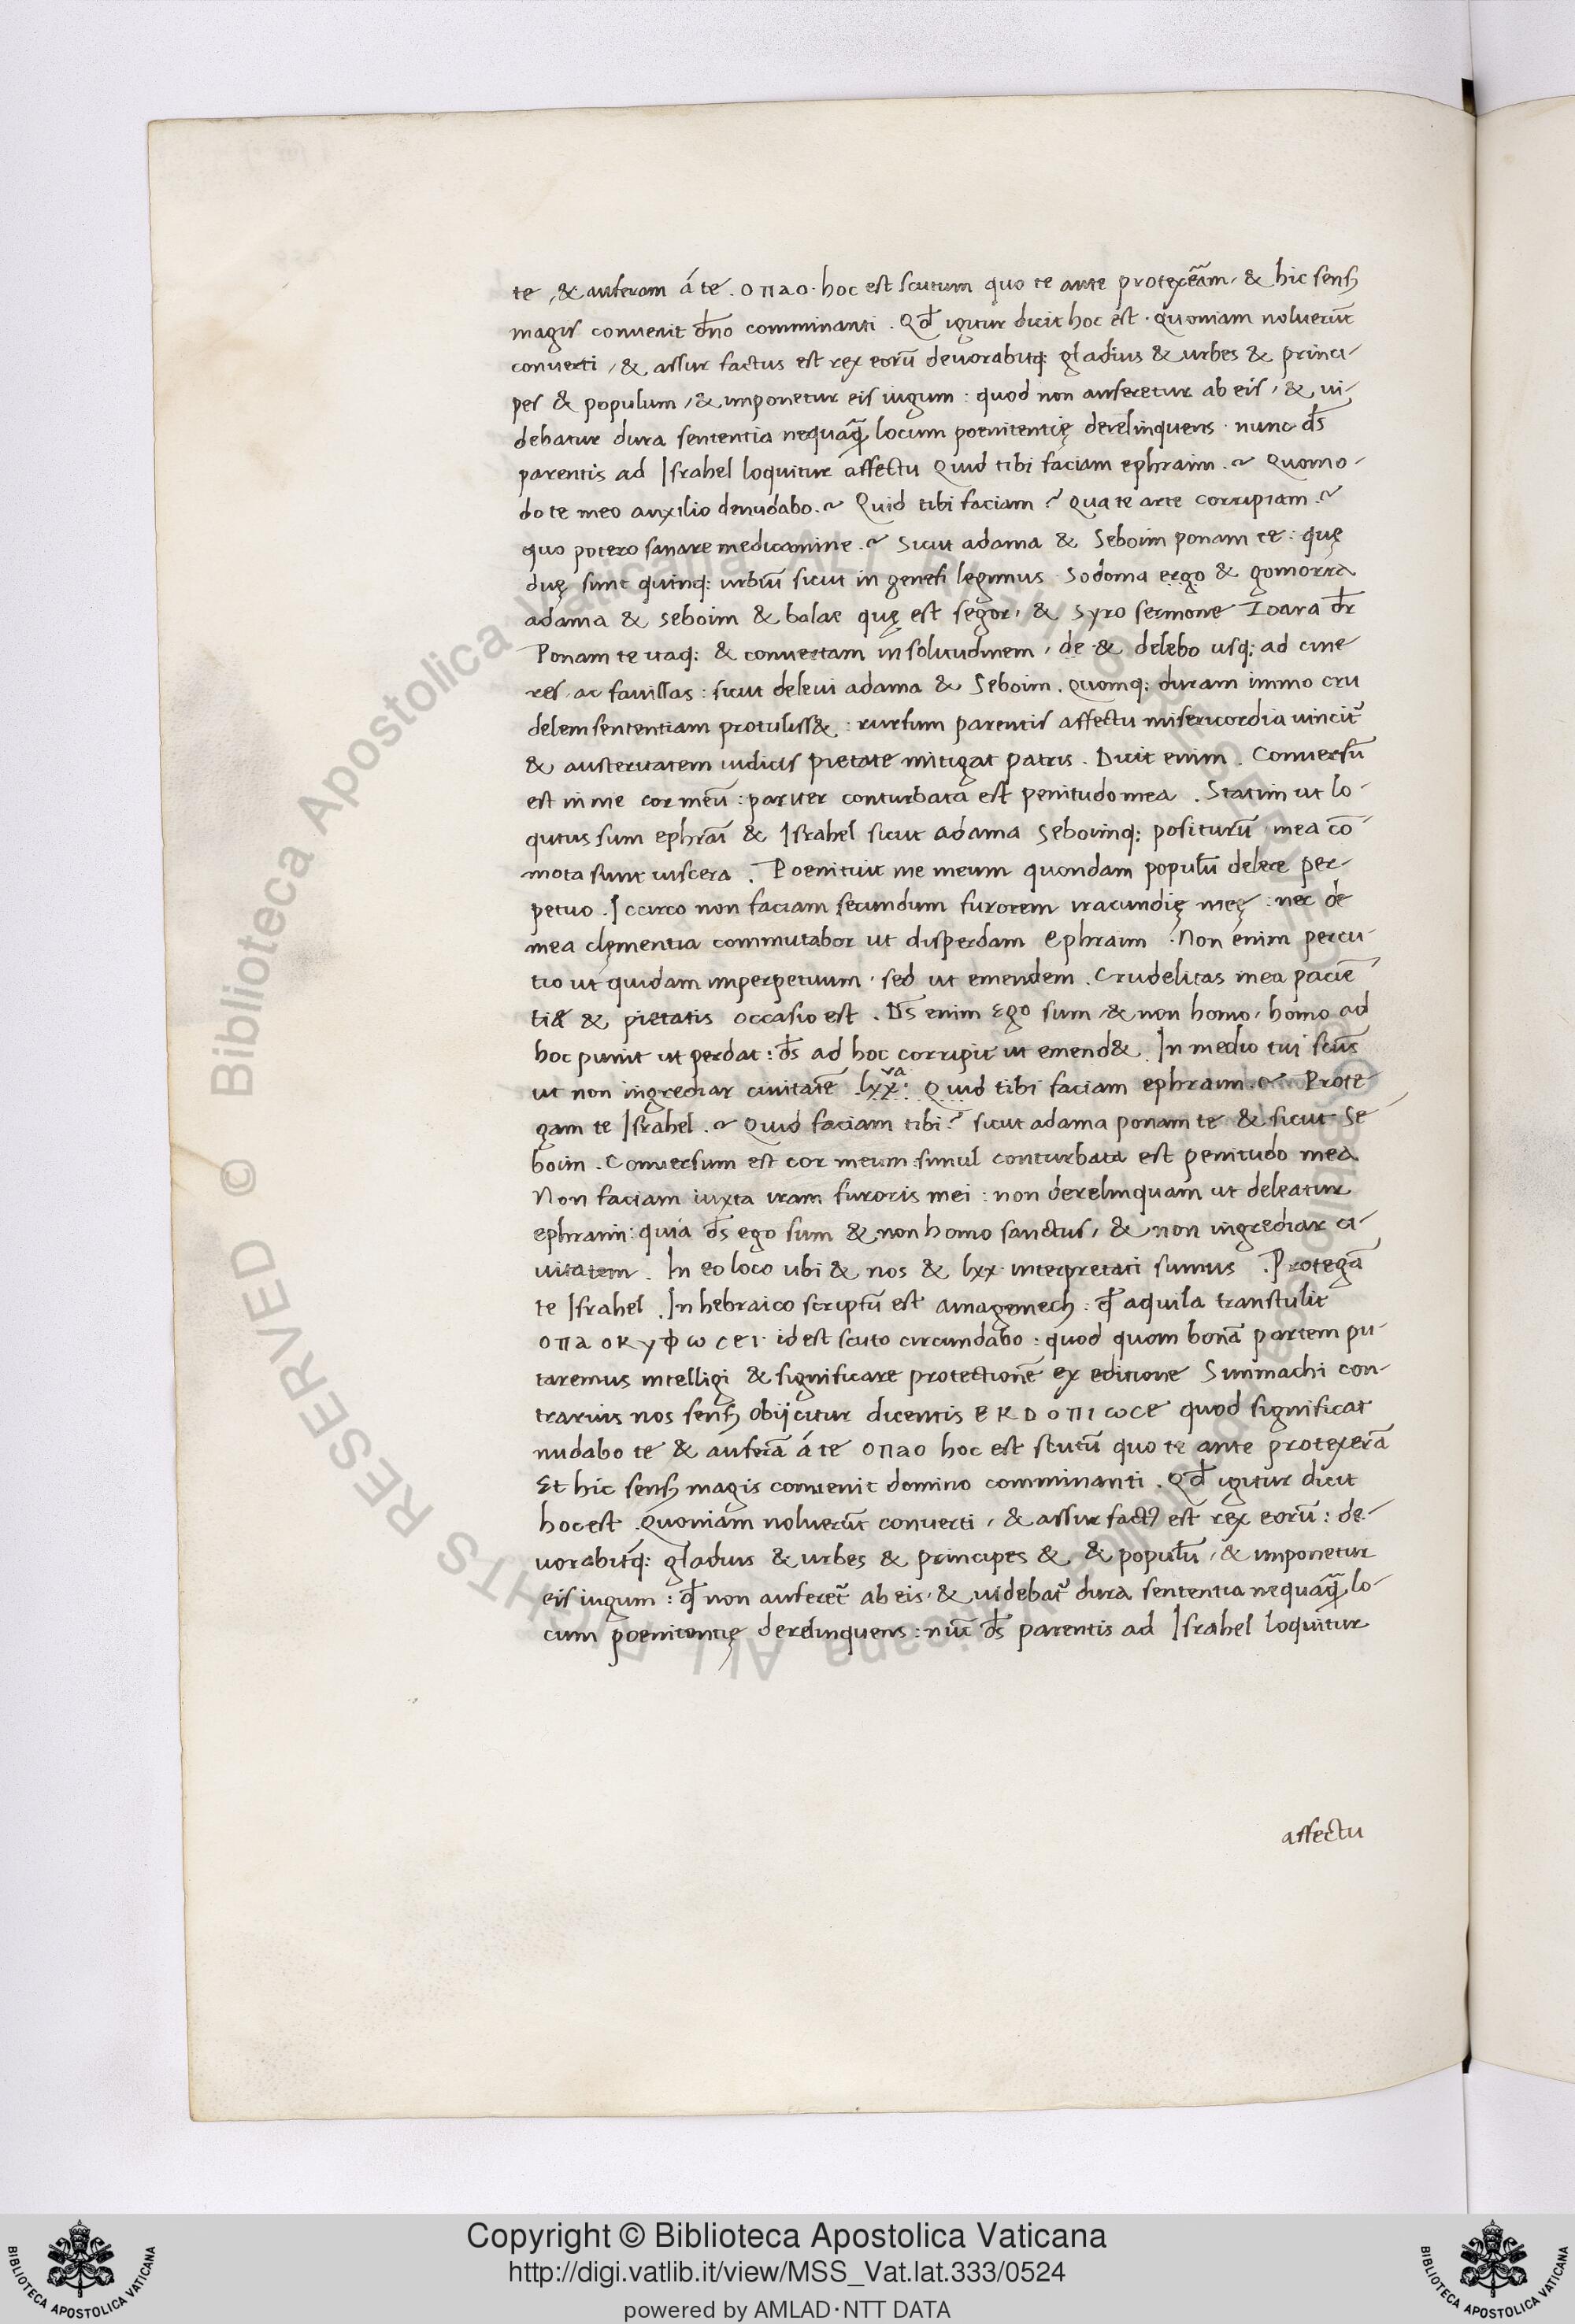 te, & auferam á te. οπαο. hoc est scutum quo te ante protexeãm, & hic sensꝰ
magis convenit dño comminanti. Qđ igitur dicit hoc est. quoniam noluerũt
converti, & assur factus est rex eorũ devorabitq; gladius & urbes & princi-
pes & populum, & imponetur eis iugum: quod non auferetur ab eis, & vi-
debatur dura sententia nequaq̃ locum poenitentię derelinquens. nunc d̃s
parentis ad Israhel loquitur affectu Quid tibi faciam ephraim.~ Quomo-
do te meo auxilio denudabo.~ Quid tibi faciam? Qua te arte corripiam.~
quo potero sanare medicamine.~ Sicut adama & Seboim ponam te: quę
duę sunt quinq; urbiũ sicut in genesi legimus. Sodoma ergo & gomorra
adama & seboim & balae quę est segor, & syro sermone Zoara dr̃
Ponam te itaq; & convertam in solitudinem, de & delebo usq; ad cine
res, ac favillas: sicut delevi adama & Seboim. Quomq; duram immo cru
delem sententiam protuliss&: rursum parentis affectu misericordia vincit᷑
& austeritatem iudicis pietate mitigat patris. Dicit enim. Conversũ
est in me cor meũ: pariter conturbata est penitudo mea. Statim ut lo-
qutus sum ephraĩ & Israhel sicut adama Seboimq; positurũ mea cõ-
mota sunt viscera. Poenituit me meum quondam populũ delere per-
petuo. Iccirco non faciam secundum furorem iracundię meę: nec de
mea clęmentia commutabor ut disperdam Ephraim. Non enim percu-
tio ut quidam imperpetuum, sed ut emendem. Crudelitas mea paciẽ
tię & pietatis occasio est. Dš enim Ego sum, & non homo, homo ad
hoc punit ut perdat: d̃s ad hoc corripit ut emend&. In medio tui scũs
ut non ingrediar civitatẽ. lxx: va Quid tibi faciam ephraim.~ Prote
gam te Israhel.~ Quid faciam tibi? sicut adama ponam te & sicut Se
boim. Conversum est cor meum: simul conturbata est penitudo mea.
Non faciam iuxta iram furoris mei: non derelinquam ut deleatur
ephraim: quia d̃s ego sum & non homo sanctus, & non ingrediar ci-
vitatem. In eo loco ubi & nos & lxx. interpretati sumus. Protegã
te Israhel. In hebraico scriptũ est amagenech: qđ aquila transtulit
οπα οκυφωσει. id est scuto circundabo: quod quom bonã partem pu-
taremus intelligi & significare protectionẽ ex editione Simmachi con-
trarius nos sensꝰ obijcitur dicentis εκδοπιωσε quod significat
nudabo te & auferã á te οπαο hoc est scutũ quo te ante protexerã
Et hic sensꝰ magis convenit domino comminanti. Qđ igitur dicit
hoc est. Quoniam noluerũt converti, & assur factꝰ est rex eorũ: de-
vorabitq; gladius & urbes & principes & & populũ, & imponetur
eis iugum: qđ non auferet᷑ ab eis, & videbat᷑ dura sententia nequaq̃ lo-
cum poenitentię derelinquens: nũc d̃s parentis ad Israhel loquitur
affectu
Copyright © Biblioteca Apostolica Vaticana
http://digi.vatlib.it/view/MSS_Vat.lat.333/0524
powered by AMLAD·NTT DATA
BIBLIOTECA APOSTOLICA VATICANA
BIBLIOTECA APOSTOLICA VATICANA
© Biblioteca Apostolica Vaticana ALL RIGHTS RESERVED